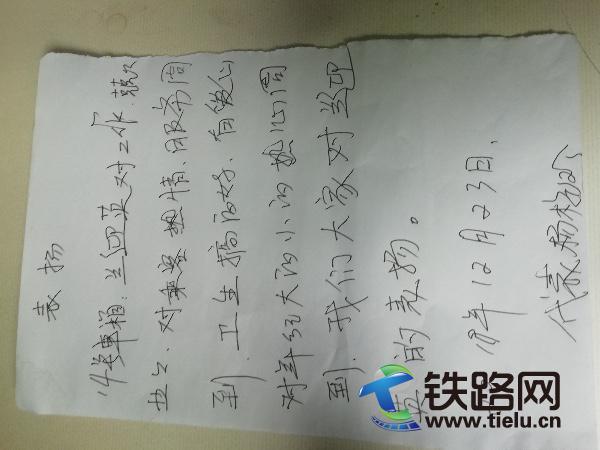 表扬
14号车相：兰迎英对工作、兢兢
业业、对乘客热情、服务周
到、卫生搞的好、有爱心
对年纪大的小的热心周
到、我们大家对兰迎
英的表扬。
18年12月23日、
代表杨
铁路网
www.tielu.cn